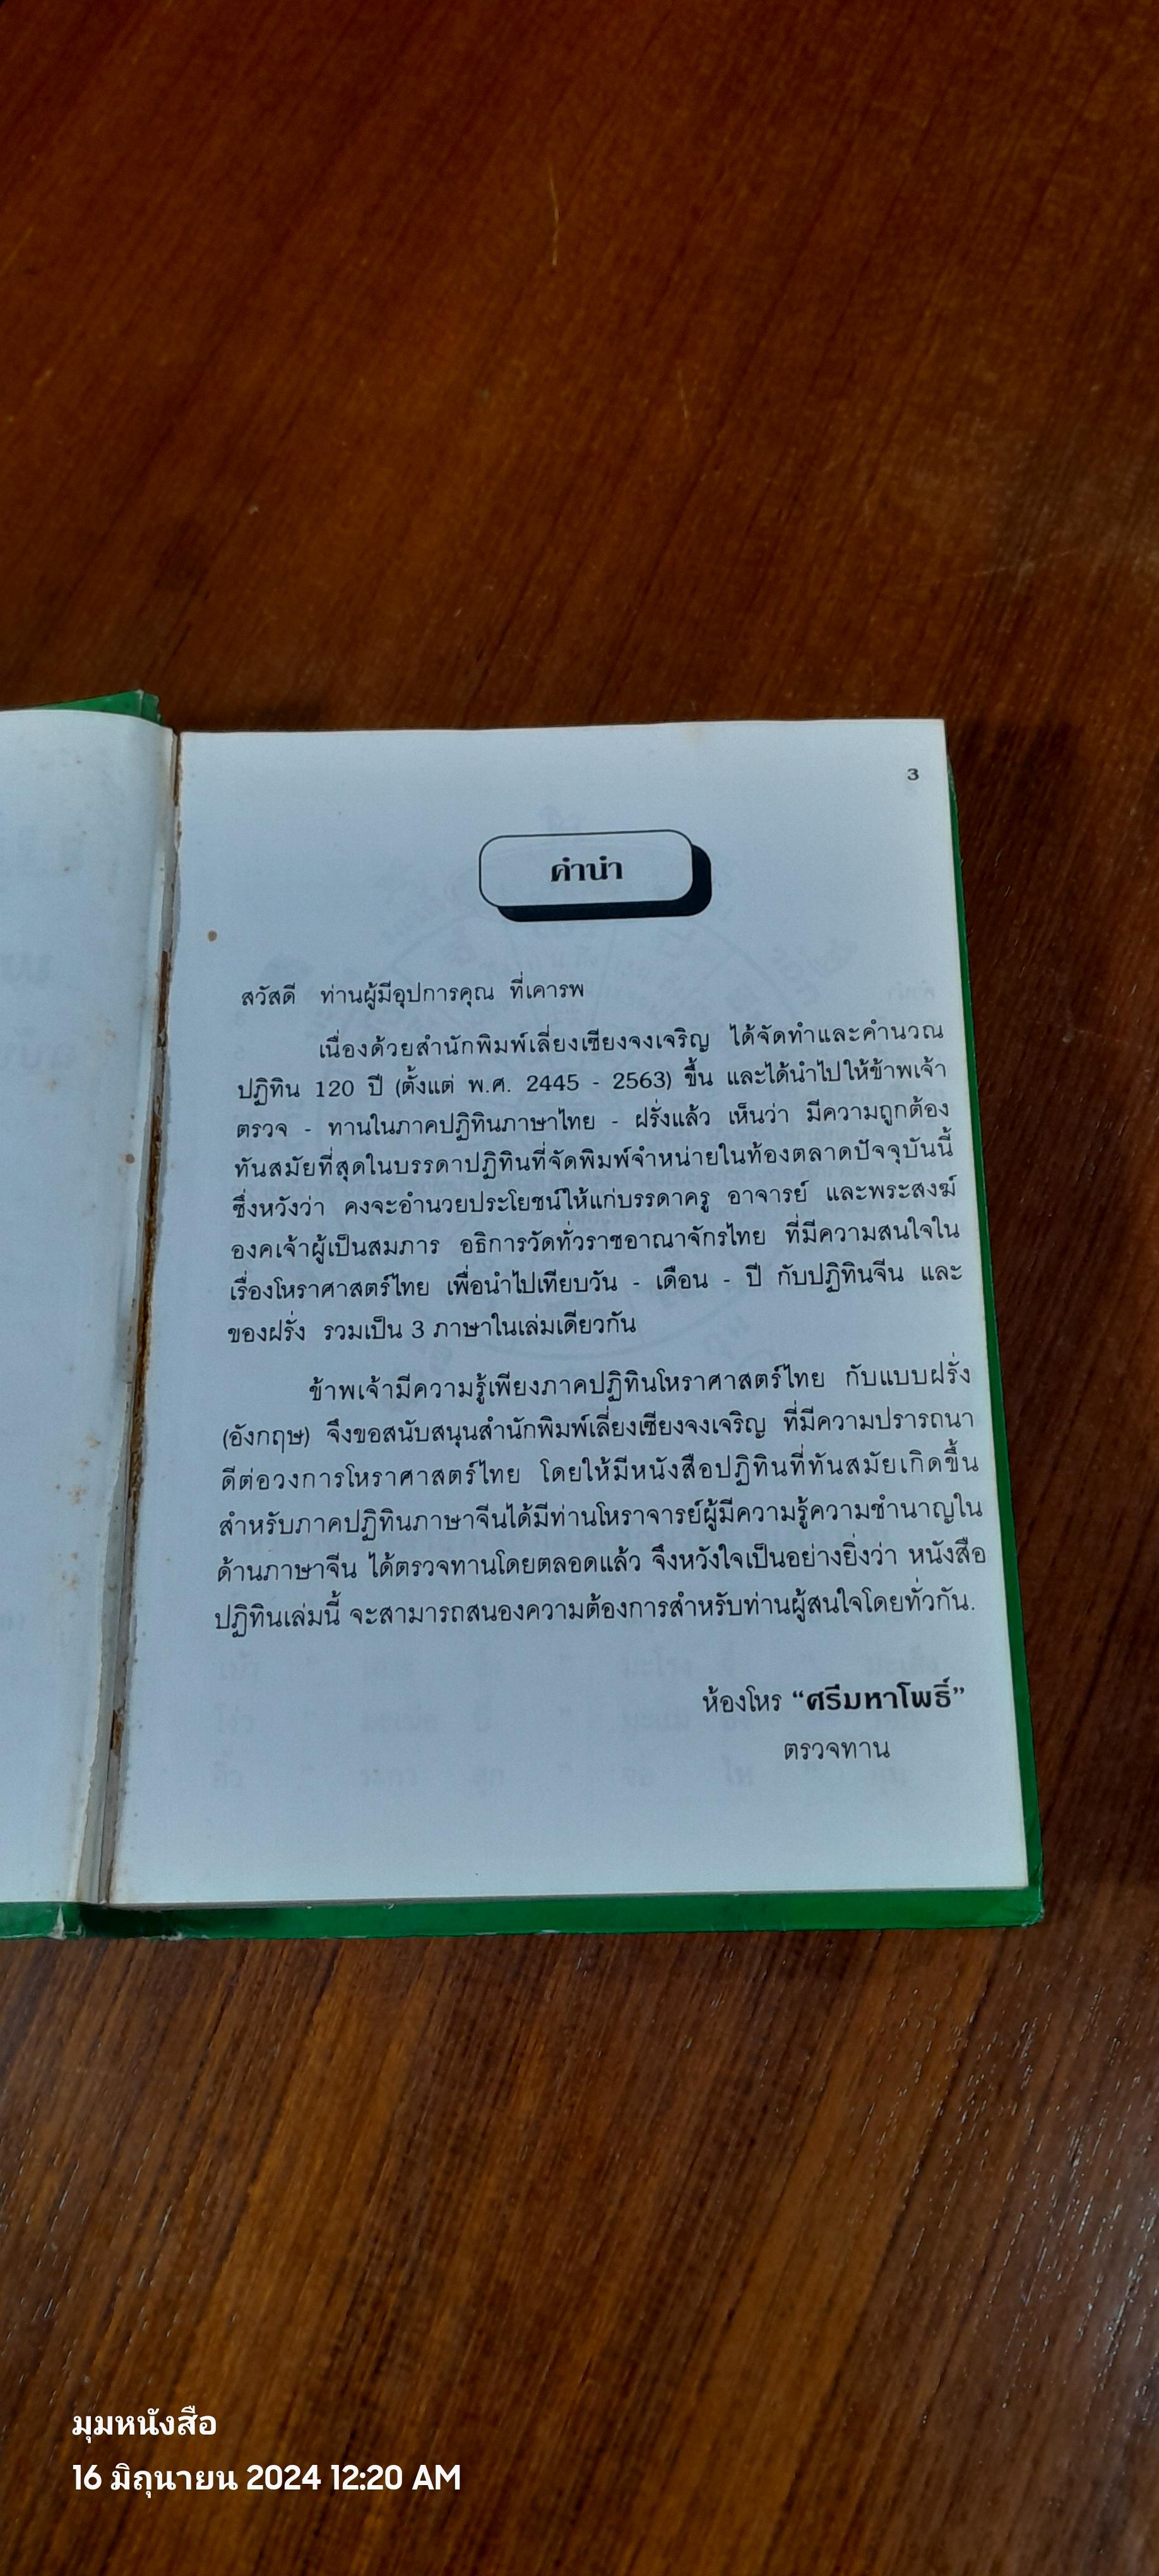 3
คำนำ
สวัสดี ท่านผู้มีอุปการคุณ ที่เคารพ
เนื่องด้วยสำนักพิมพ์เลี่ยงเซียงจงเจริญ ได้จัดทำและคำนวณ
ปฏิทิน 120 ปี (ตั้งแต่ พ.ศ. 2445 - 2563) ขึ้น และได้นำไปให้ข้าพเจ้า
ตรวจ - ทานในภาคปฏิทินภาษาไทย - ฝรั่งแล้ว เห็นว่า มีความถูกต้อง
ทันสมัยที่สุดในบรรดาปฏิทินที่จัดพิมพ์จำหน่ายในท้องตลาดปัจจุบันนี้
ซึ่งหวังว่า คงจะอำนวยประโยชน์ให้แก่บรรดาครู อาจารย์ และพระสงฆ์
องคเจ้าผู้เป็นสมภาร อธิการวัดทั่วราชอาณาจักรไทย ที่มีความสนใจใน
เรื่องโหราศาสตร์ไทย เพื่อนำไปเทียบวัน - เดือน - ปี กับปฏิทินจีน และ
ของฝรั่ง รวมเป็น 3 ภาษาในเล่มเดียวกัน
ข้าพเจ้ามีความรู้เพียงภาคปฏิทินโหราศาสตร์ไทย กับแบบฝรั่ง
(อังกฤษ) จึงขอสนับสนุนสำนักพิมพ์เลี่ยงเซียงจงเจริญ ที่มีความปรารถนา
ดีต่อวงการโหราศาสตร์ไทย โดยให้มีหนังสือปฏิทินที่ทันสมัยเกิดขึ้น
สำหรับภาคปฏิทินภาษาจีนได้มีท่านโหราจารย์ผู้มีความรู้ความชำนาญใน
ด้านภาษาจีน ได้ตรวจทานโดยตลอดแล้ว จึงหวังใจเป็นอย่างยิ่งว่า หนังสือ
ปฏิทินเล่มนี้ จะสามารถสนองความต้องการสำหรับท่านผู้สนใจโดยทั่วกัน.
ห้องโหร “ศรีมหาโพธิ์”
ตรวจทาน
มุมหนังสือ
16 มิถุนายน 2024 12:20 AM